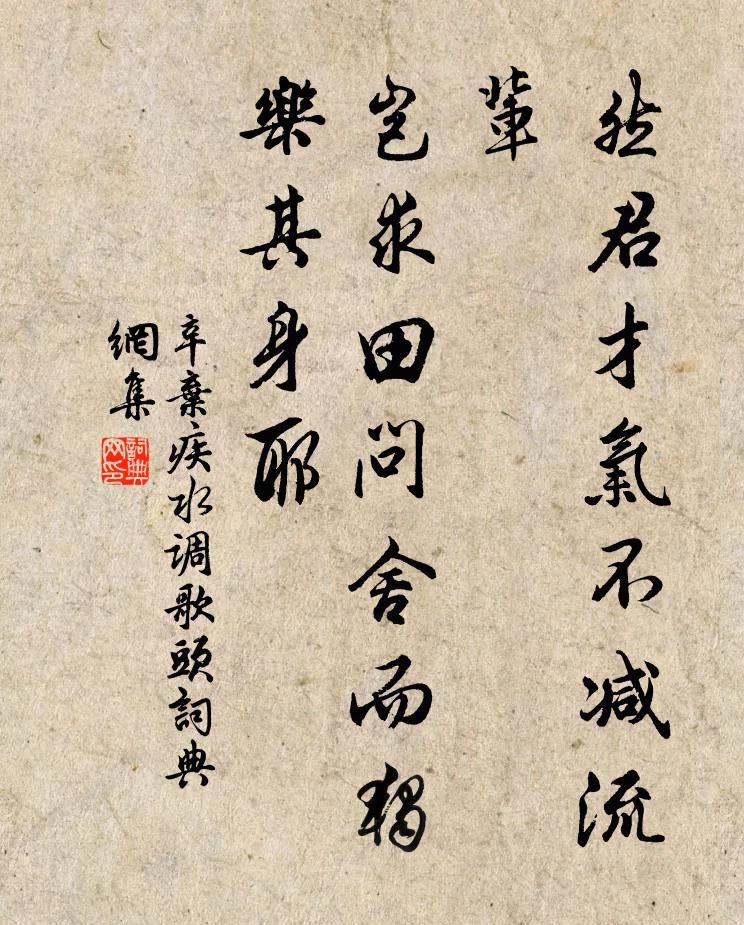 然君才氣不減流
輩
豈求田問舍而獨
樂其身耶
辛棄疾水调歌頭詞典
網集
詞典
网印